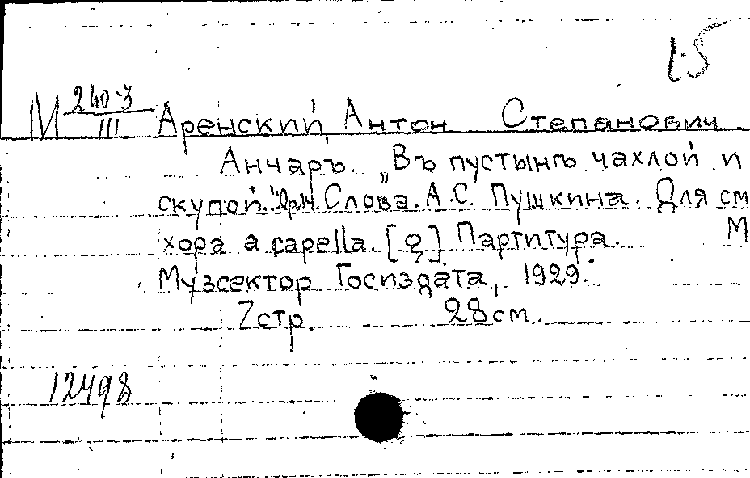 L5
М 240-3/III Аренский, Антон Степанович
Анчаръ. „Въ пустынѣ чахлой и
скупой." Слова А.С. Пушкина. Для см
хора a capella. [ ] Партитура. М
Музсектор Госиздата, 1929.
7стр. 28см.
12498